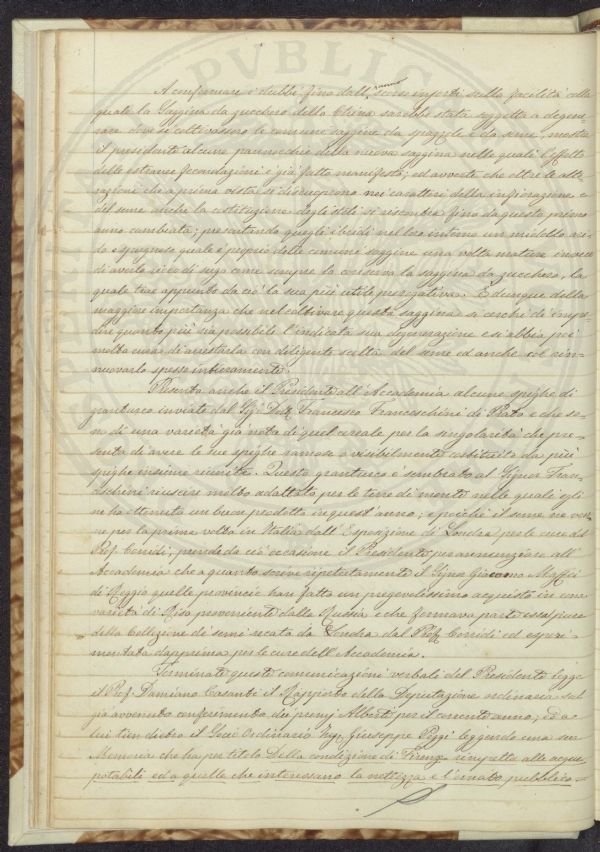 PVBLICA
A confermare i dubbi fino dall' anno scorso insorti sulla facilità colla
quale la Saggina da zucchero della China sarebbe stata soggetta a degene-
rare dove si coltivassero le comuni saggine da spazzole e da seme, mostra
il presidente alcune pannocchie della nuova saggina nelle quali l'effetto
delle estranee fecondazioni è già fatto manifesto; ed avverte che oltre le alte-
razioni che a prima vista si discuoprono nei caratteri della infiorazione e
del seme anche la costituzione degli steli si riscontra fino da questo primo
anno cambiata; presentando quegli ibridi nel loro interno un midollo ari-
do e spugnoso quale è proprio delle comuni saggine una volta mature invece
di averlo ricco di sugo come sempre lo conserva la saggina da zucchero, la
quale trae appunto da ciò la sua più utile prerogativa. È dunque della
maggiore importanza che nel coltivare questa saggina si cerchi di impe-
dire quanto più sia possibile l'indicata sua degenerazione e si abbia poi
molta cura di arrestarla con diligente scelta del seme ed anche col rin-
nuovarlo spesso intieramente.
Presenta anche il Presidente all'Accademia alcune spighe di
granturco inviate dal Sig. Dott. Francesco Franceschini di Prato e che so-
no di una varietà già nota di quel cereale per la singolarità che pre-
senta di avere le sue spighe ramose o visibilmente costituite da più
spighe insieme riunite. Questo granturco è sembrato al Signor Fran-
ceschini riuscire molto adattato per le terre di monte nelle quali egli
ne ha ottenuto un buon prodotto in quest'anno; e poichè il seme ne ven-
ne per la prima volta in Italia dall'Esposizione di Londra per le cure del
Prof. Corridi, prende da ciò occasione il Presidente per annunziare all'
Accademia che a quanto scrive ripetutamente il Signor Giacomo Maffei
di Reggio quelle provincie han fatto un pregevolissimo acquisto in una
varietà di Riso proveniente dalla Russia e che formava parte essa pure
della Collezione di semi recata da Londra dal Prof. Corridi ed esperi-
mentata dapprima per le cure dell'Accademia.
Terminate queste comunicazioni verbali del Presidente legge
il Prof. Damiano Casanti il Rapporto della Deputazione ordinaria sul
già avvenuto conferimento dei premj Alberti per il corrente anno; ed a
lui tien dietro il Socio Ordinario Ing. Giuseppe Poggi leggendo una sua
Memoria che ha per titolo Della condizione di Firenze rispetto alle acque
potabili ed a quelle che interessano la nettezza e l'ornato pubblico.